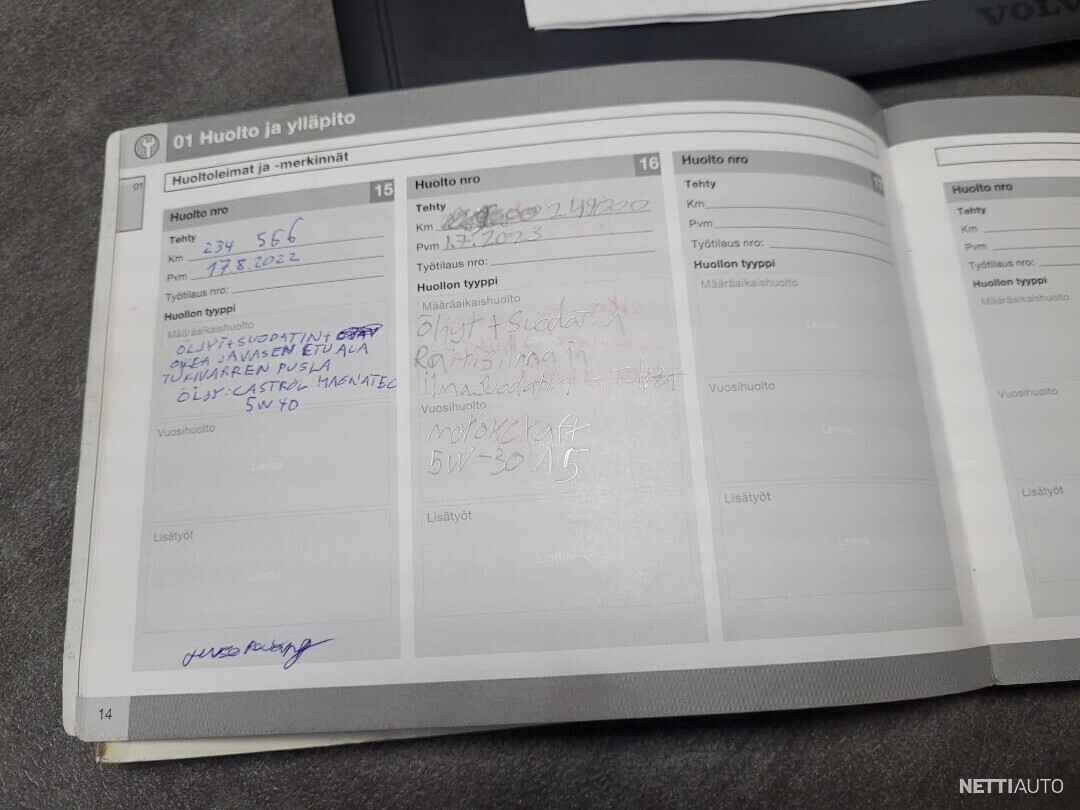 VOLV
01 Huolto ja ylläpito
Huoltoleimat ja -merkinnät
01
Huolto nro 15
Tehty
Km 234 566
Pvm 17.8.2022
Työtilaus nro:
Huollon tyyppi
Määräaikaishuolto
ÖLJYT+SUODATIN+
OIKEA JAVASEN ETU ALA
TUKIVARREN PUSLA
ÖLJY: CASTROL MAGNATEC
5W40
Vuosihuolto
Leima
Lisätyöt
Leima
Huolto nro 16
Tehty
Km 249200
Pvm 1.7.2023
Työtilaus nro:
Huollon tyyppi
Määräaikaishuolto
Öljyt + Suodatin
Raitisilma ja
ilmasuodatin
Vuosihuolto
5W-30 A5
Lisätyöt
Leima
Huolto nro 17
Tehty
Km
Pvm
Työtilaus nro:
Huollon tyyppi
Määräaikaishuolto
Leima
Vuosihuolto
Leima
Lisätyöt
Leima
Huolto nro
Tehty
Km
Pvm
Työtilaus nro:
Huollon tyyppi
Määräaikaishuolto
Vuosihuolto
Lisätyöt
14
NETTIAUTO